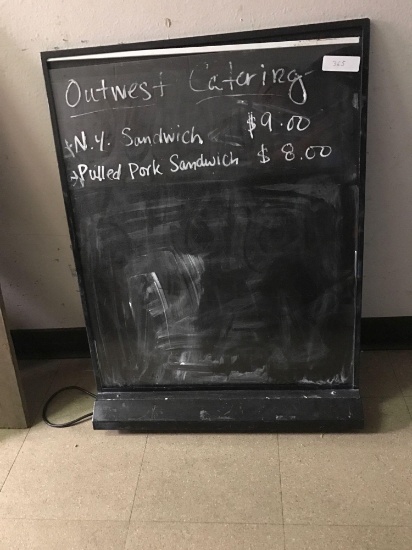 365
Outwest Catering
N.Y. Sandwich $9.00
Pulled Pork Sandwich $8.00